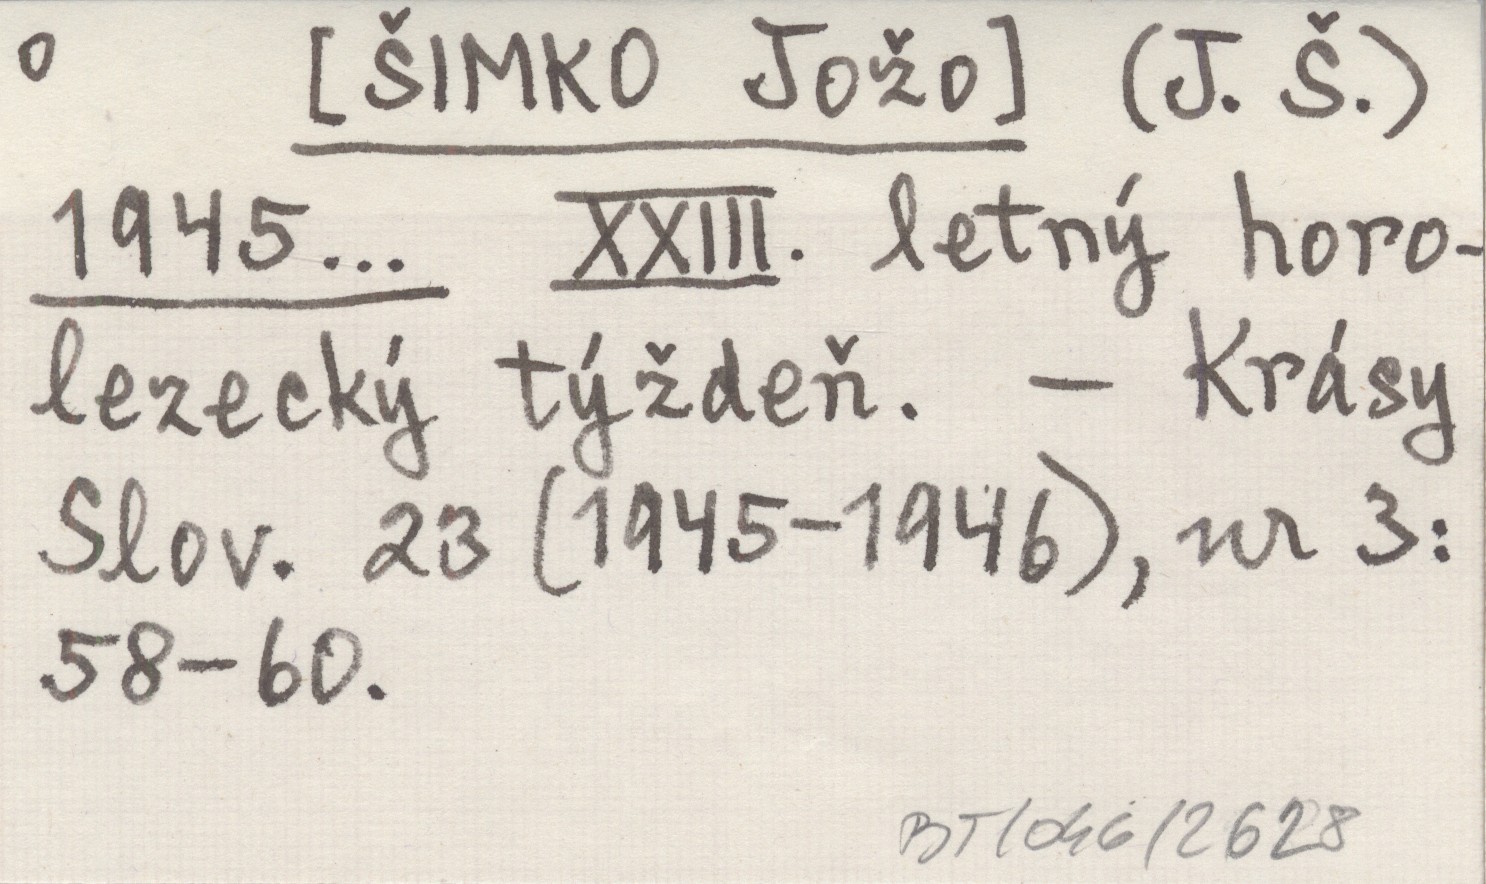 o [ŠIMKO Jožo] (J. Š.)
1945... XXIII. letný horo-
lezecký týždeň. — Krásy
Slov. 23 (1945-1946), nr 3:
58-60.
BT/046/2628